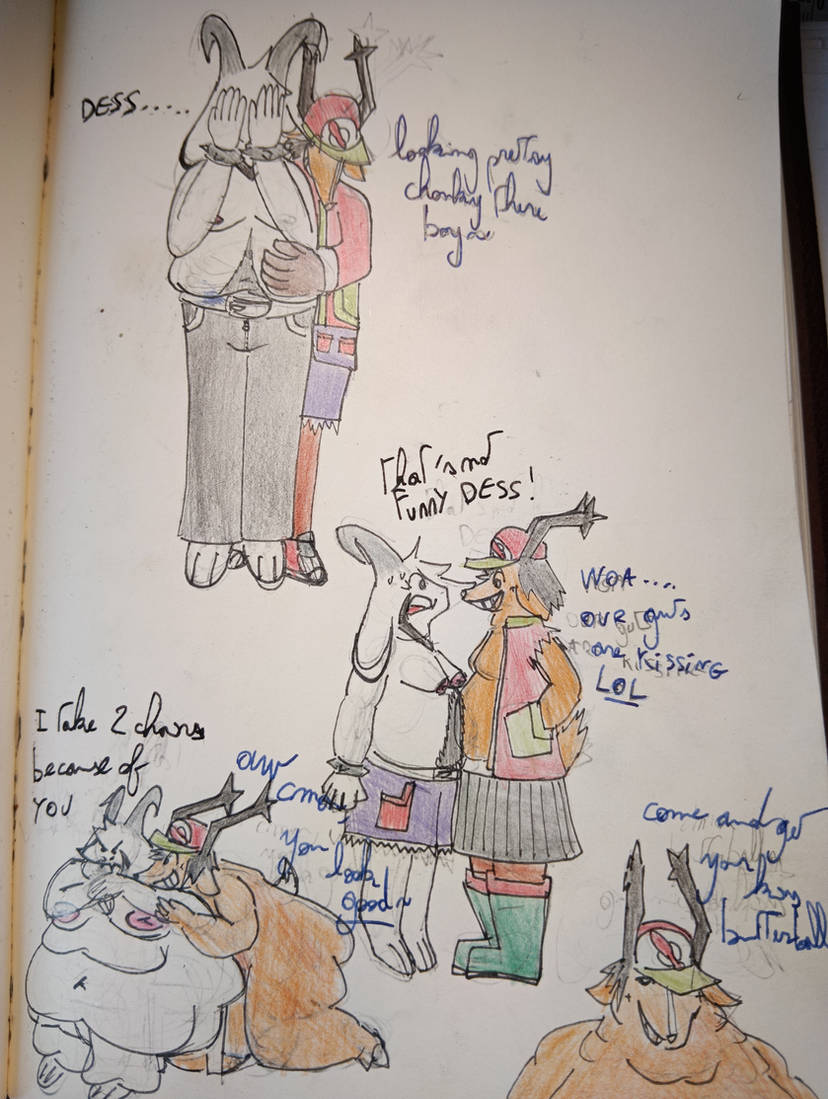 DESS.....
looking pretty
chonky there
boyo
That's not
FUNNY DESS!
WOA....
our guts
are kissing
LOL
I take 2 chairs
because of
YOU
aw
cmon,
you
look
good~
come and get
your kiss
butterball